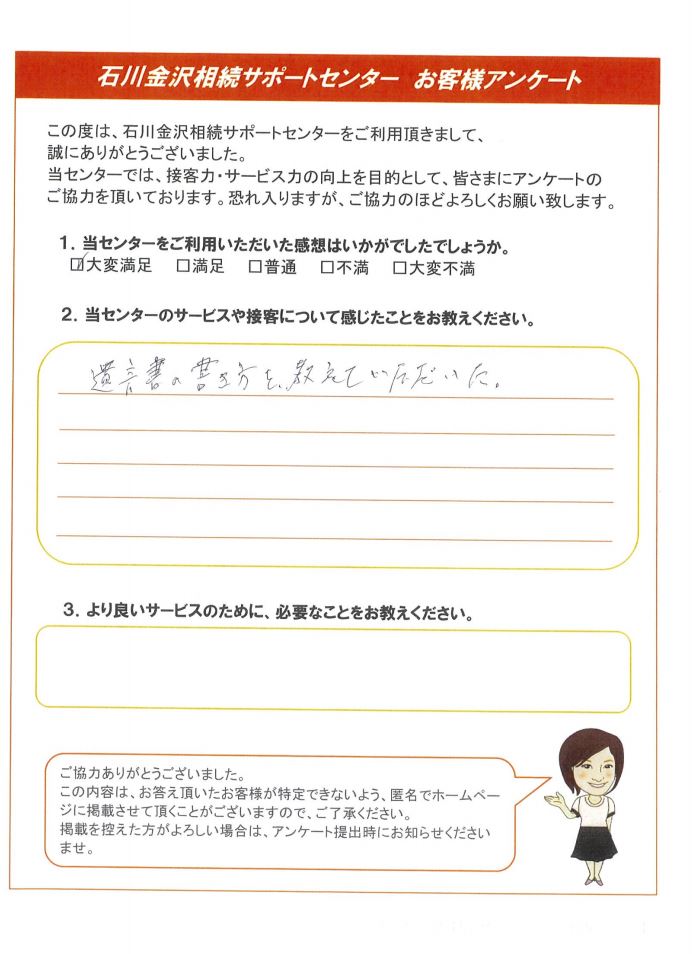 石川金沢相続サポートセンター　お客様アンケート
この度は、石川金沢相続サポートセンターをご利用頂きまして、
誠にありがとうございました。
当センターでは、接客力・サービス力の向上を目的として、皆さまにアンケートの
ご協力を頂いております。恐れ入りますが、ご協力のほどよろしくお願い致します。
１．当センターをご利用いただいた感想はいかがでしたでしょうか。
☑大変満足　□満足　□普通　□不満　□大変不満
２．当センターのサービスや接客について感じたことをお教えください。
遺言書の書き方を、教えていただいた。
３．より良いサービスのために、必要なことをお教えください。
ご協力ありがとうございました。
この内容は、お答え頂いたお客様が特定できないよう、匿名でホームペー
ジに掲載させて頂くことがございますので、ご了承ください。
掲載を控えた方がよろしい場合は、アンケート提出時にお知らせください
ませ。